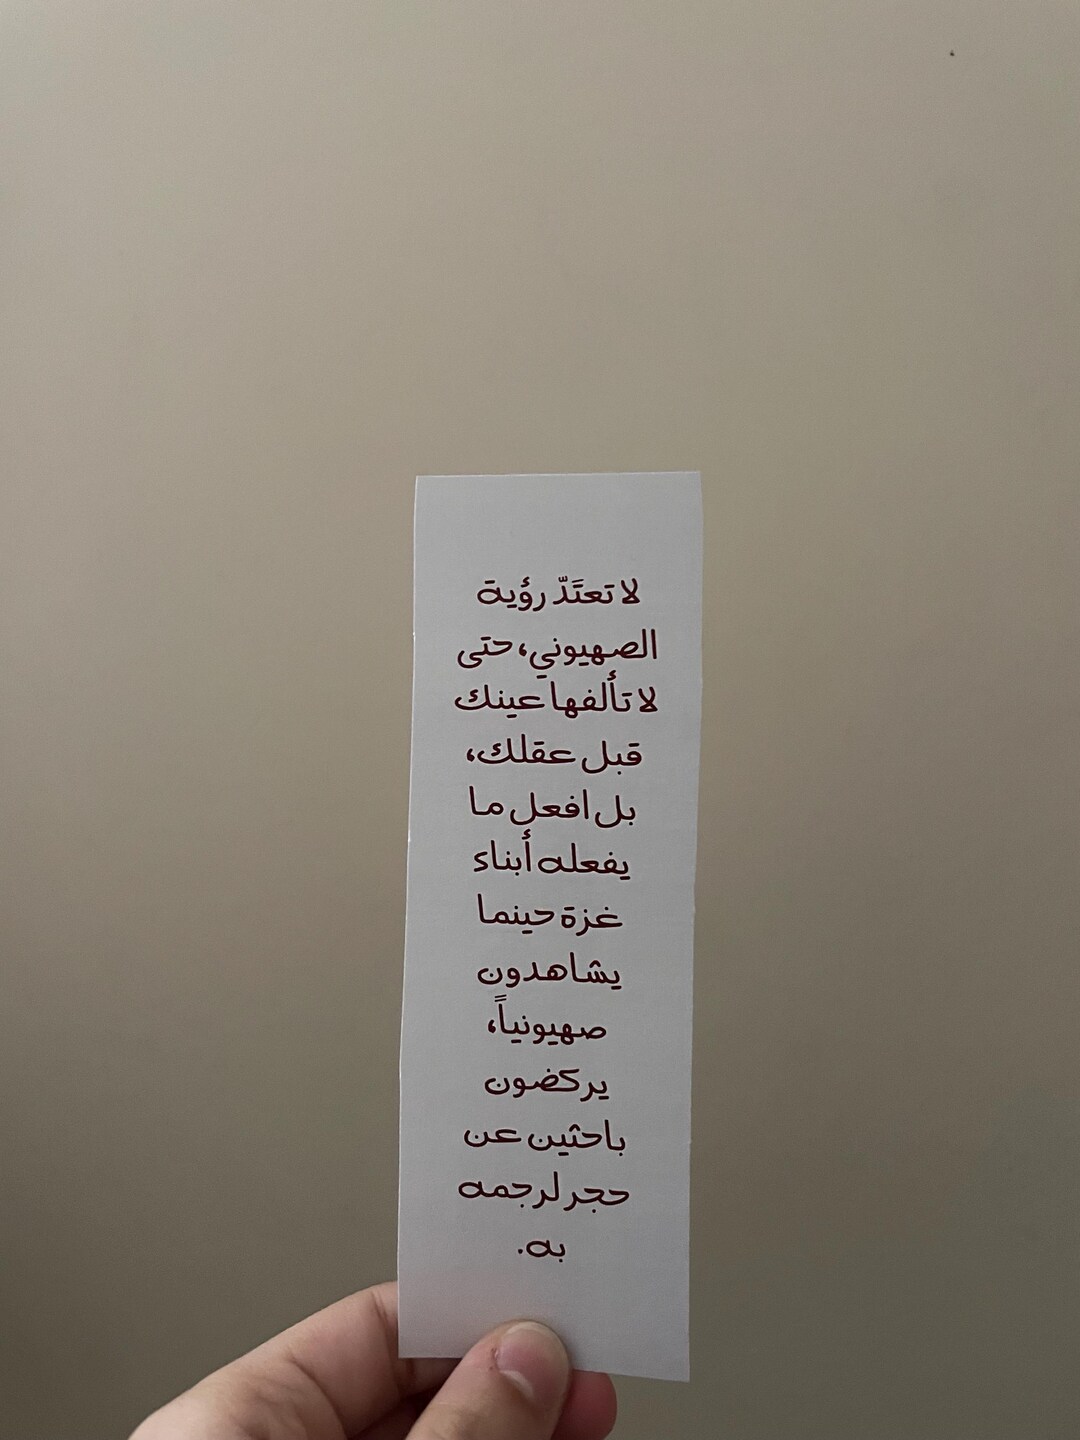 لا تعتَدّ رؤية
الصهيوني، حتى
لا تألفها عينك
قبل عقلك،
بل افعل ما
يفعله أبناء
غزة حينما
يشاهدون
صهيونياً،
يركضون
باحثين عن
حجر لرجمه
به.